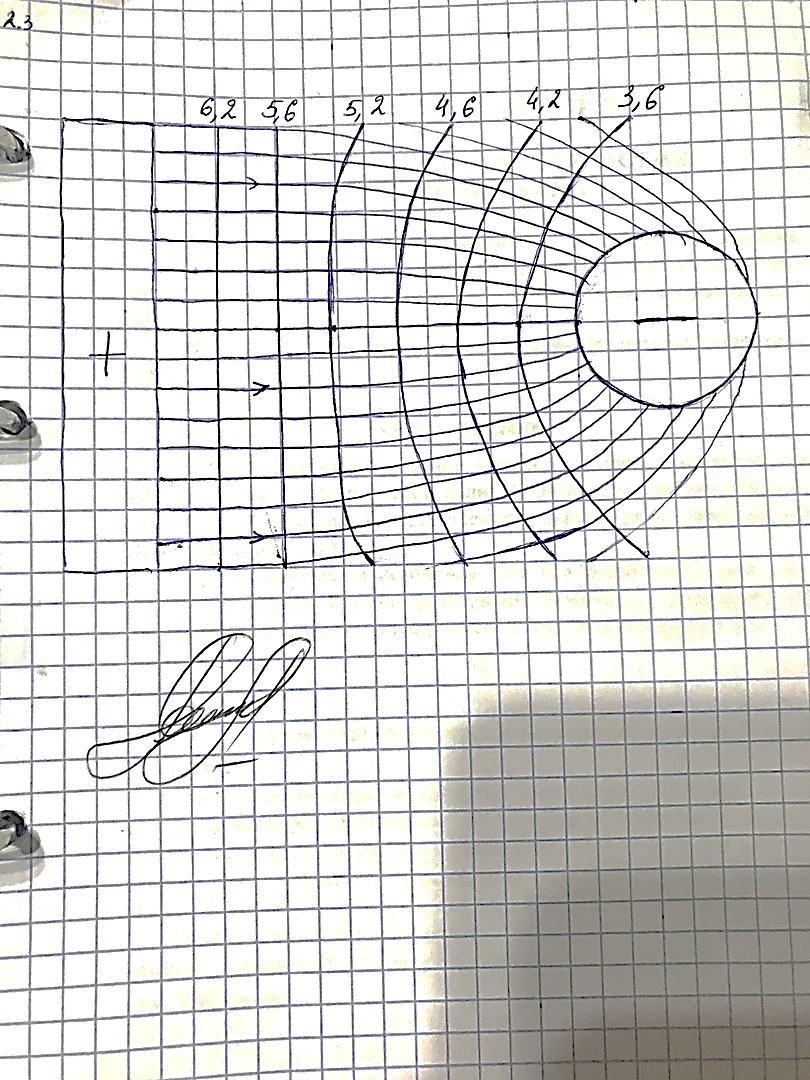 2.3
6,2 5,6 5,2 4,6 4,2 3,6
+ −